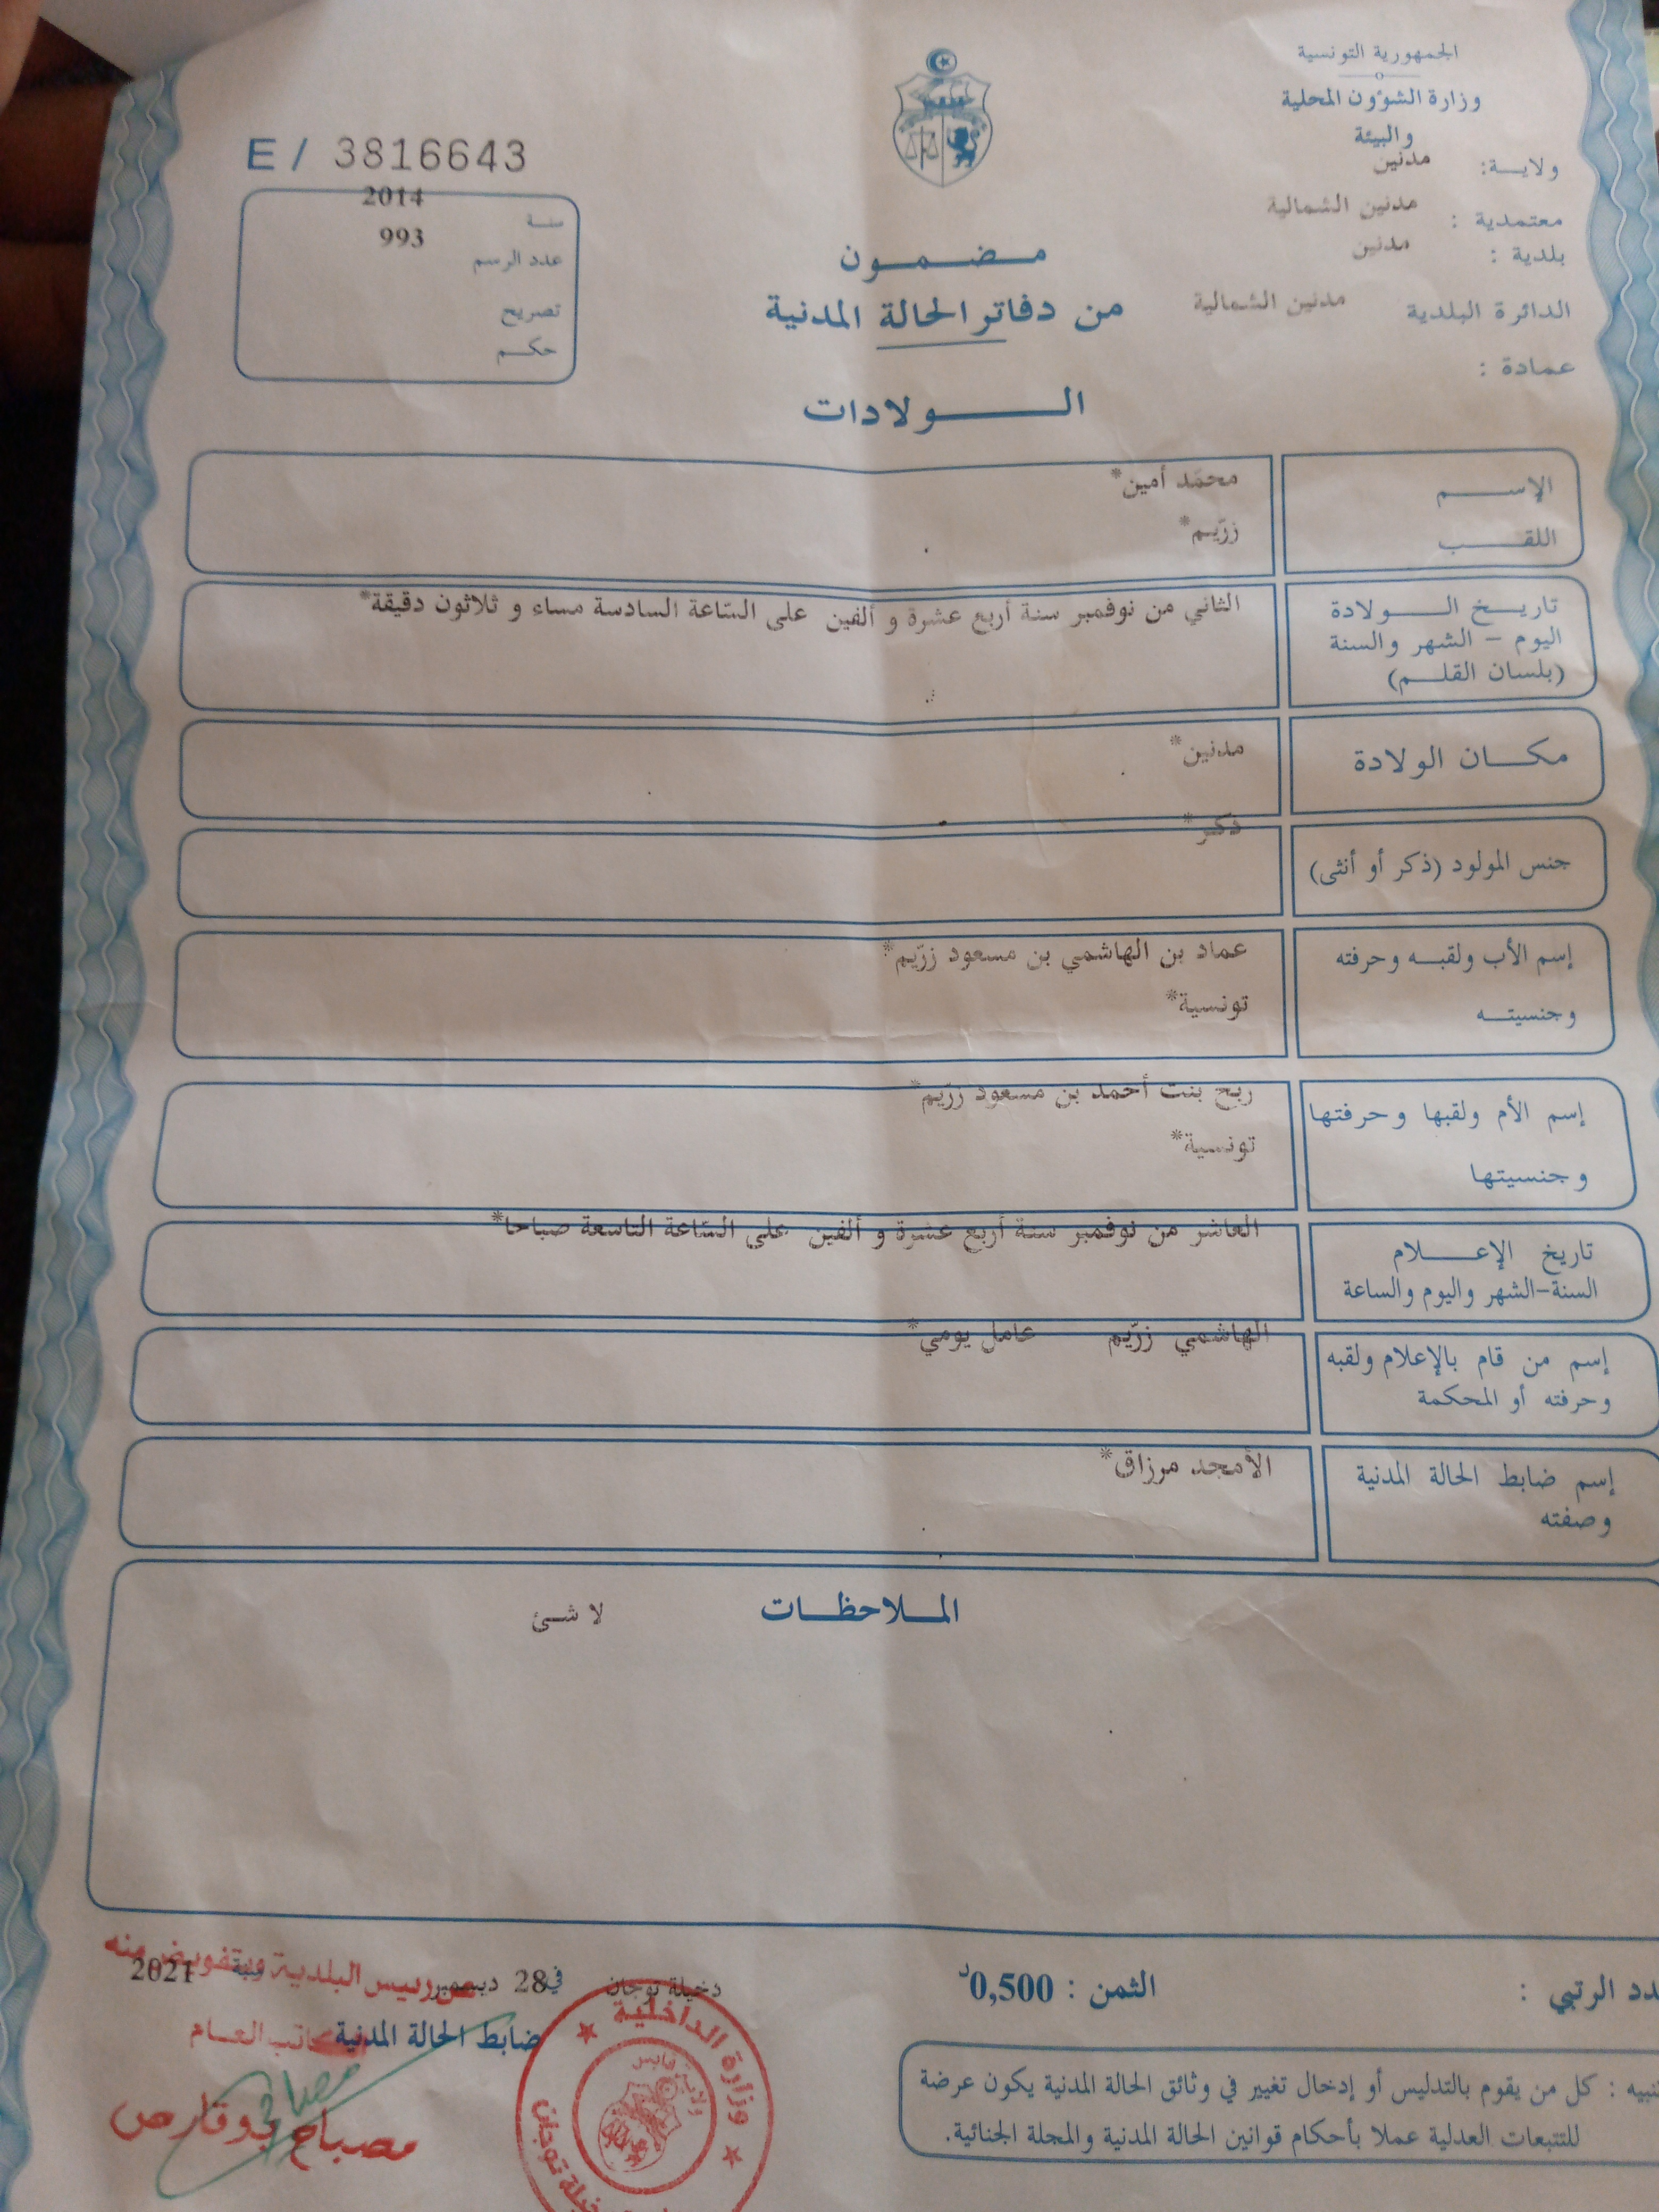 الجمهورية التونسية
وزارة الشؤون المحلية
والبيئة
ولاية: مدنين
معتمدية : مدنين الشمالية
بلدية : مدنين
الدائرة البلدية مدنين الشمالية
عمادة :
مضمون
من دفاتر الحالة المدنية
الولادات
E / 3816643
سنة 2014
عدد الرسم 993
تصريح
حكم
الإسم محمّد أمين*
اللقب زرّيم*
تاريخ الولادة الثاني من نوفمبر سنة أربع عشرة و ألفين على السّاعة السادسة مساء و ثلاثون دقيقة*
اليوم – الشهر والسنة
(بلسان القلم)
مكان الولادة مدنين*
جنس المولود (ذكر أو أنثى) ذكر*
إسم الأب ولقبه وحرفته عماد بن الهاشمي بن مسعود زرّيم*
وجنسيته تونسية*
إسم الأم ولقبها وحرفتها ربح بنت أحمد بن مسعود زرّيم*
وجنسيتها تونسية*
تاريخ الإعلام العاشر من نوفمبر سنة أربع عشرة و ألفين على السّاعة التاسعة صباحا*
السنة-الشهر واليوم والساعة
إسم من قام بالإعلام ولقبه الهاشمي زرّيم عامل يومي*
وحرفته أو المحكمة
إسم ضابط الحالة المدنية الأمجد مرزاق*
وصفته
الملاحظات لا شئ
الثمن : 0,500د
دخيلة توجان في 28 ديسمبر 2021
رئيس البلدية وبتفويض منه
ضابط الحالة المدنية
الكاتب العام
مصباح بوقارص
وزارة الداخلية
كل من يقوم بالتدليس أو إدخال تغيير في وثائق الحالة المدنية يكون عرضة
للتتبعات العدلية عملا بأحكام قوانين الحالة المدنية والمجلة الجنائية.